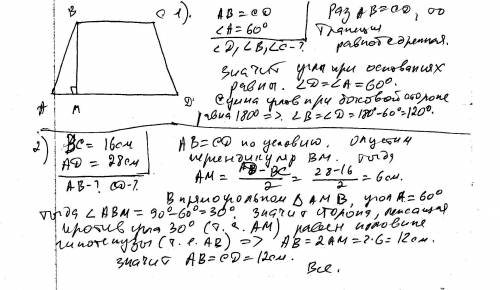 B C 1).
A M D
AB = CD
∠A = 60°
∠D, ∠B, ∠C - ?
Раз AB = CD, то
трапеция
равнобедренная.
Значит углы при основаниях
равны. ∠D = ∠A = 60°.
Сумма углов при боковой стороне
равна 180° => ∠B = ∠D = 180° - 60° = 120°.
2) BC = 16 см
AD = 28 см
AB - ? CD - ?
AB = CD по условию. Опустим
перпендикуляр BM. Тогда
AM = (AD - BC)/2 = (28 - 16)/2 = 6 см.
В прямоугольном ΔAMB, угол A = 60°
тогда ∠ABM = 90° - 60° = 30°. Значит сторона, лежащая
против угла 30° (т. е. AM) равен половине
гипотенузы (т. е. AB) => AB = 2AM = 2·6 = 12 см.
Значит AB = CD = 12 см.
Все.